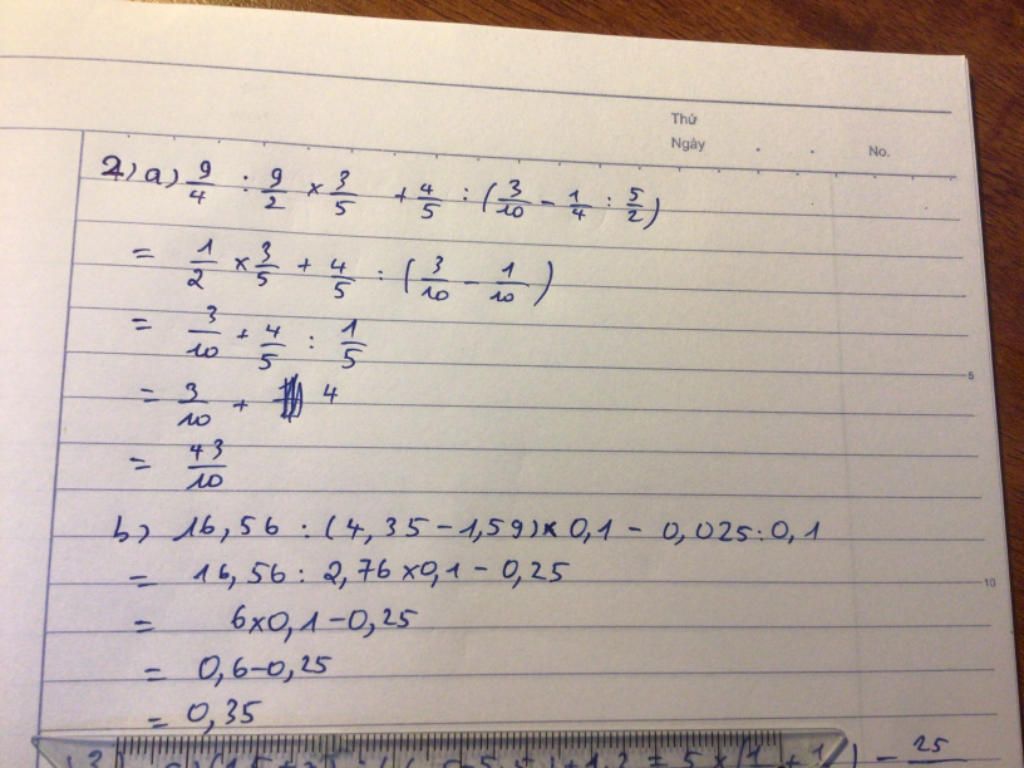 Thứ
Ngày . . No.
2) a) 9/4 : 9/2 × 3/5 + 4/5 : (3/10 - 1/4 : 5/2)
= 1/2 × 3/5 + 4/5 : (3/10 - 1/10)
= 3/10 + 4/5 : 1/5
= 3/10 + 4
5
= 43/10
b) 16,56 : (4,35 - 1,59) × 0,1 - 0,025 : 0,1
= 16,56 : 2,76 × 0,1 - 0,25
10
= 6 × 0,1 - 0,25
= 0,6 - 0,25
= 0,35